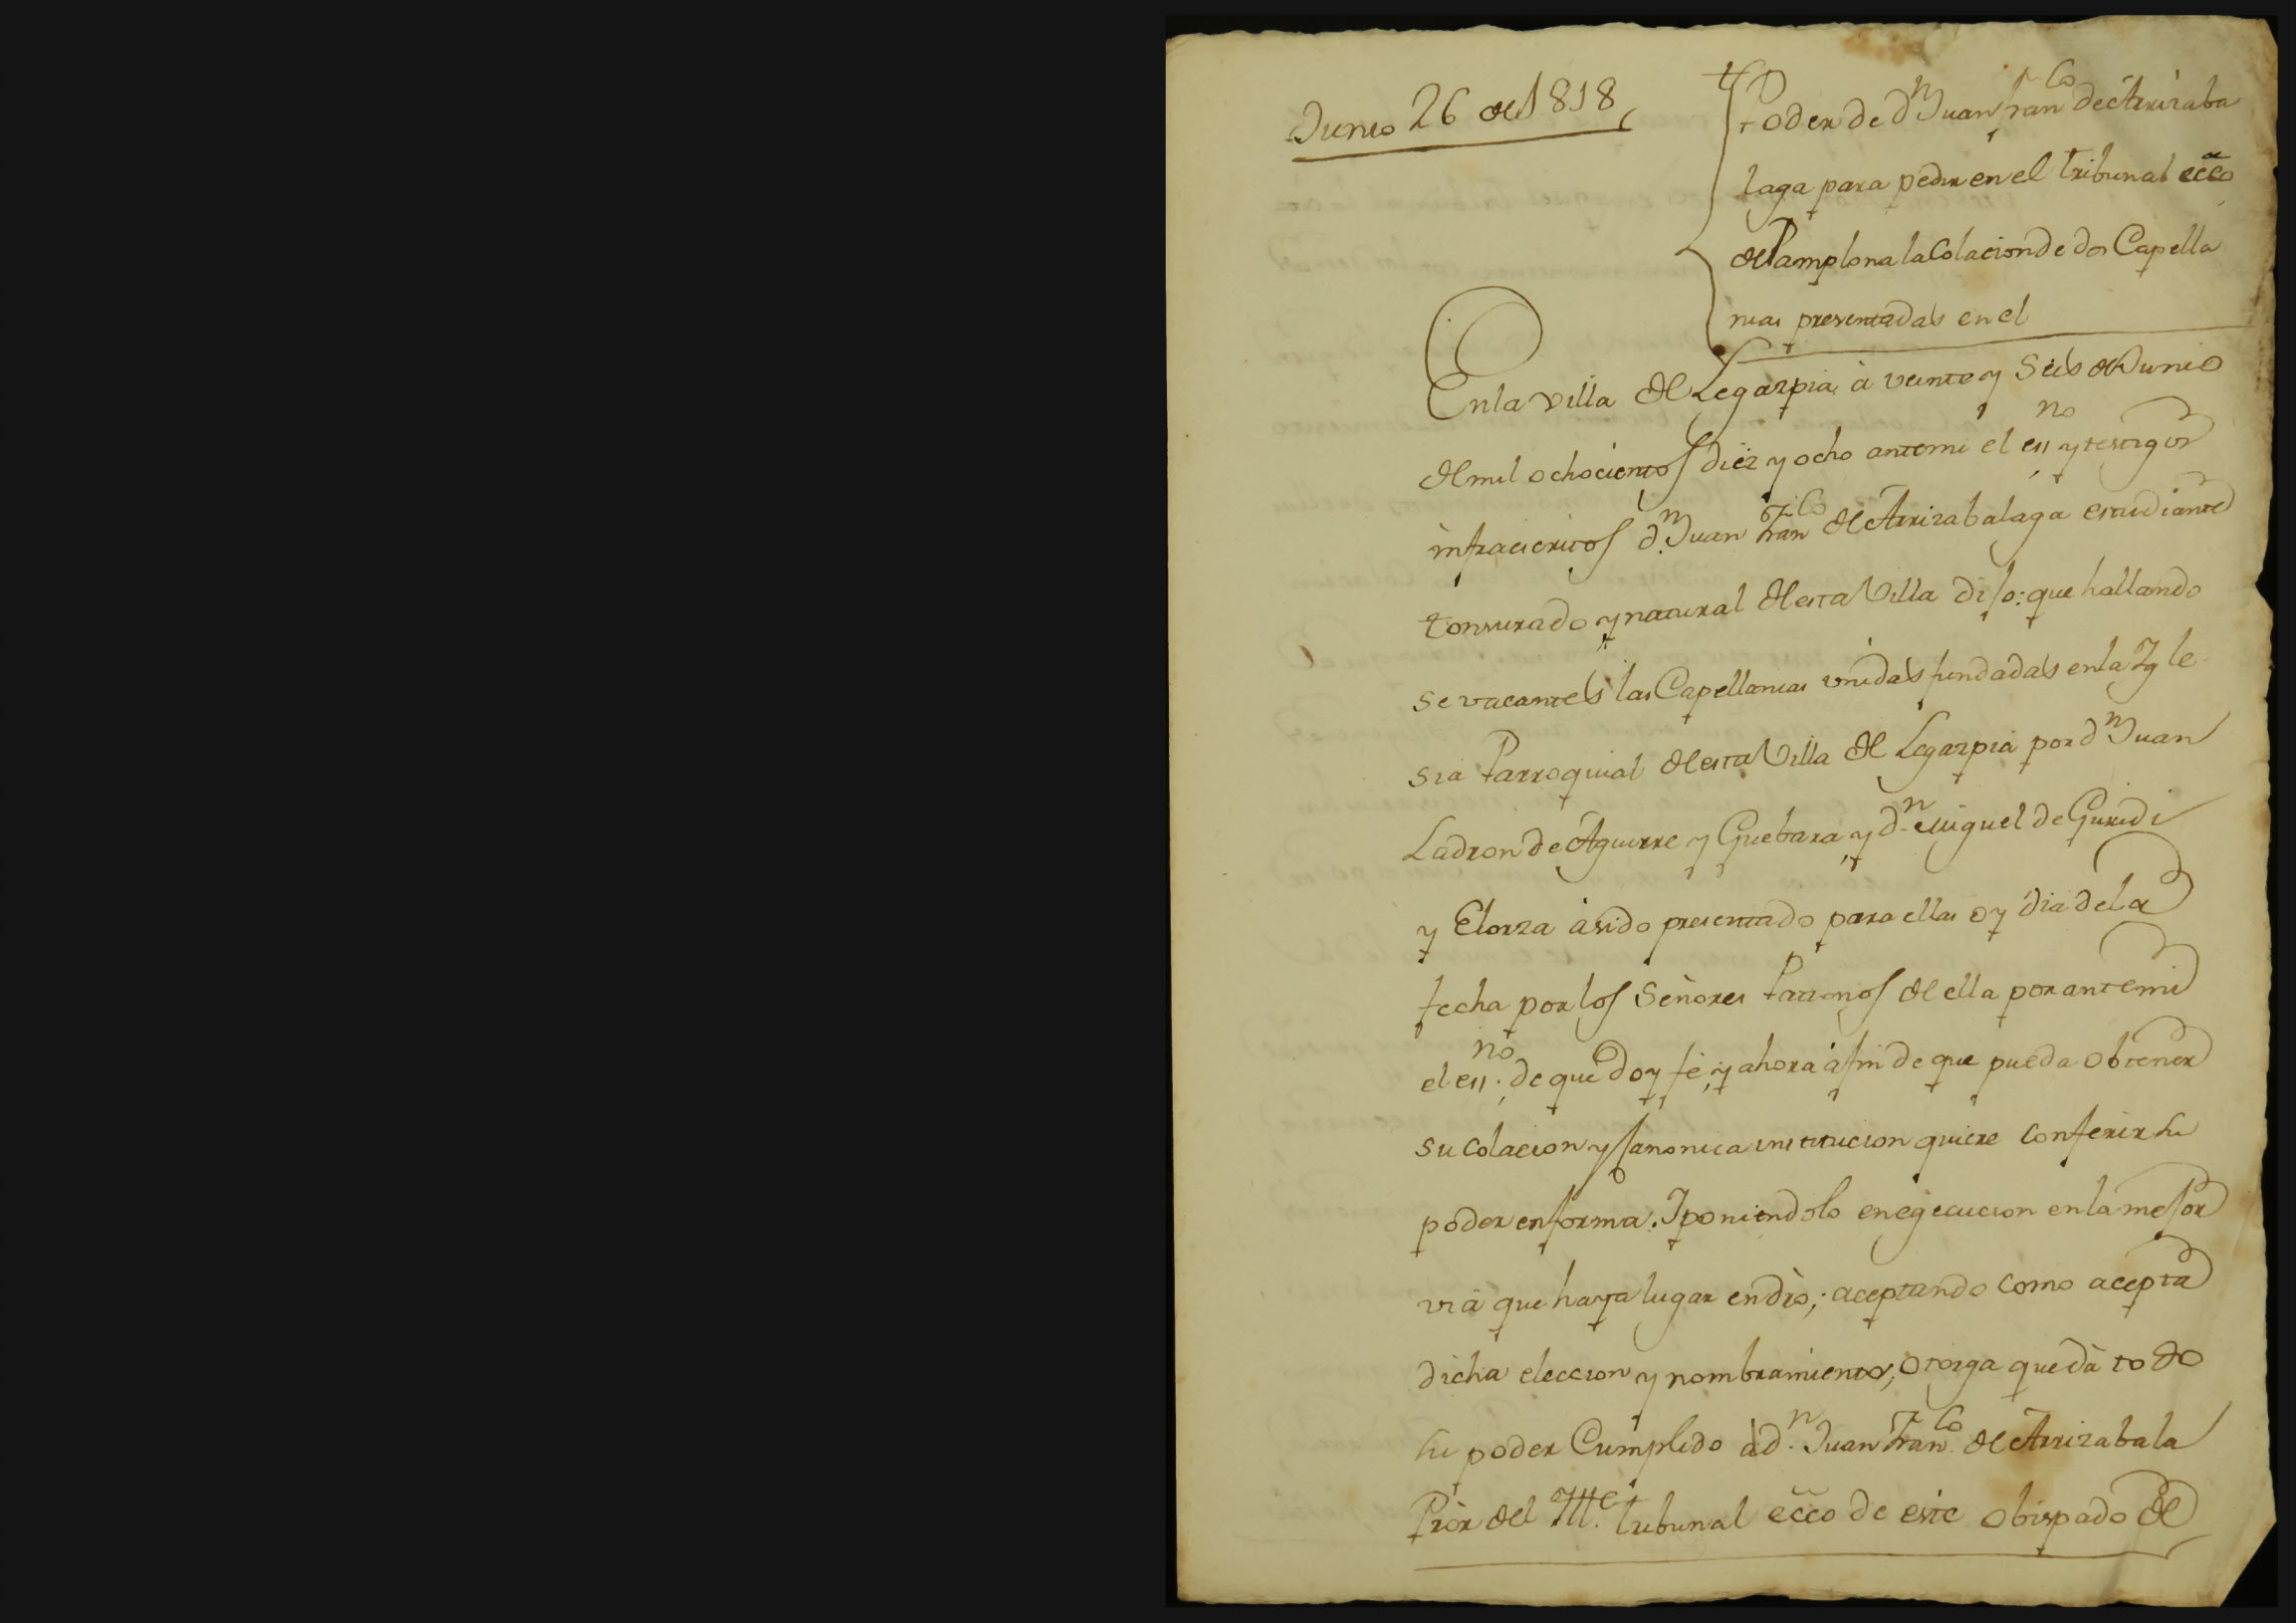 Junio 26 de 1818
Poder de Dn Juan Franco de Arrizaba
laga para pedir en el tribunal ecco
de Pamplona la Colacion de dos Capella
nias presentadas en el
En la villa de Legazpia à veinte y seis de Junio
de mil ochocientos diez y ocho ante mi el essno y testigos
infraescritos dn Juan Franco de Arrizabalaga estudiante
tonsurado y natural de esta Villa dijo: que hallando
se vacantes las Capellanias vnidas fundadas en la Igle
sia Parroquial de esta Villa de Legazpia por dn Juan
Ladron de Aguirre y Guebara y dn Miguel de Guridi
y Elorza à sido presentado para ellas oy dia de la
fecha por los Señores Patronos de ella por ante mi
el essno de que doy fé, y ahora à fin de que pueda obtener
su colacion y Canonica institucion quiere conferir su
poder en forma. Y poniendolo en egecucion en la mejor
via que haya lugar en dro; aceptando como acepta
dicha eleccion y nombramiento, otorga que dà todo
su poder Cumplido à dn Juan Franco de Arrizabala
Prór del Ille tribunal ecco de este Obispado de